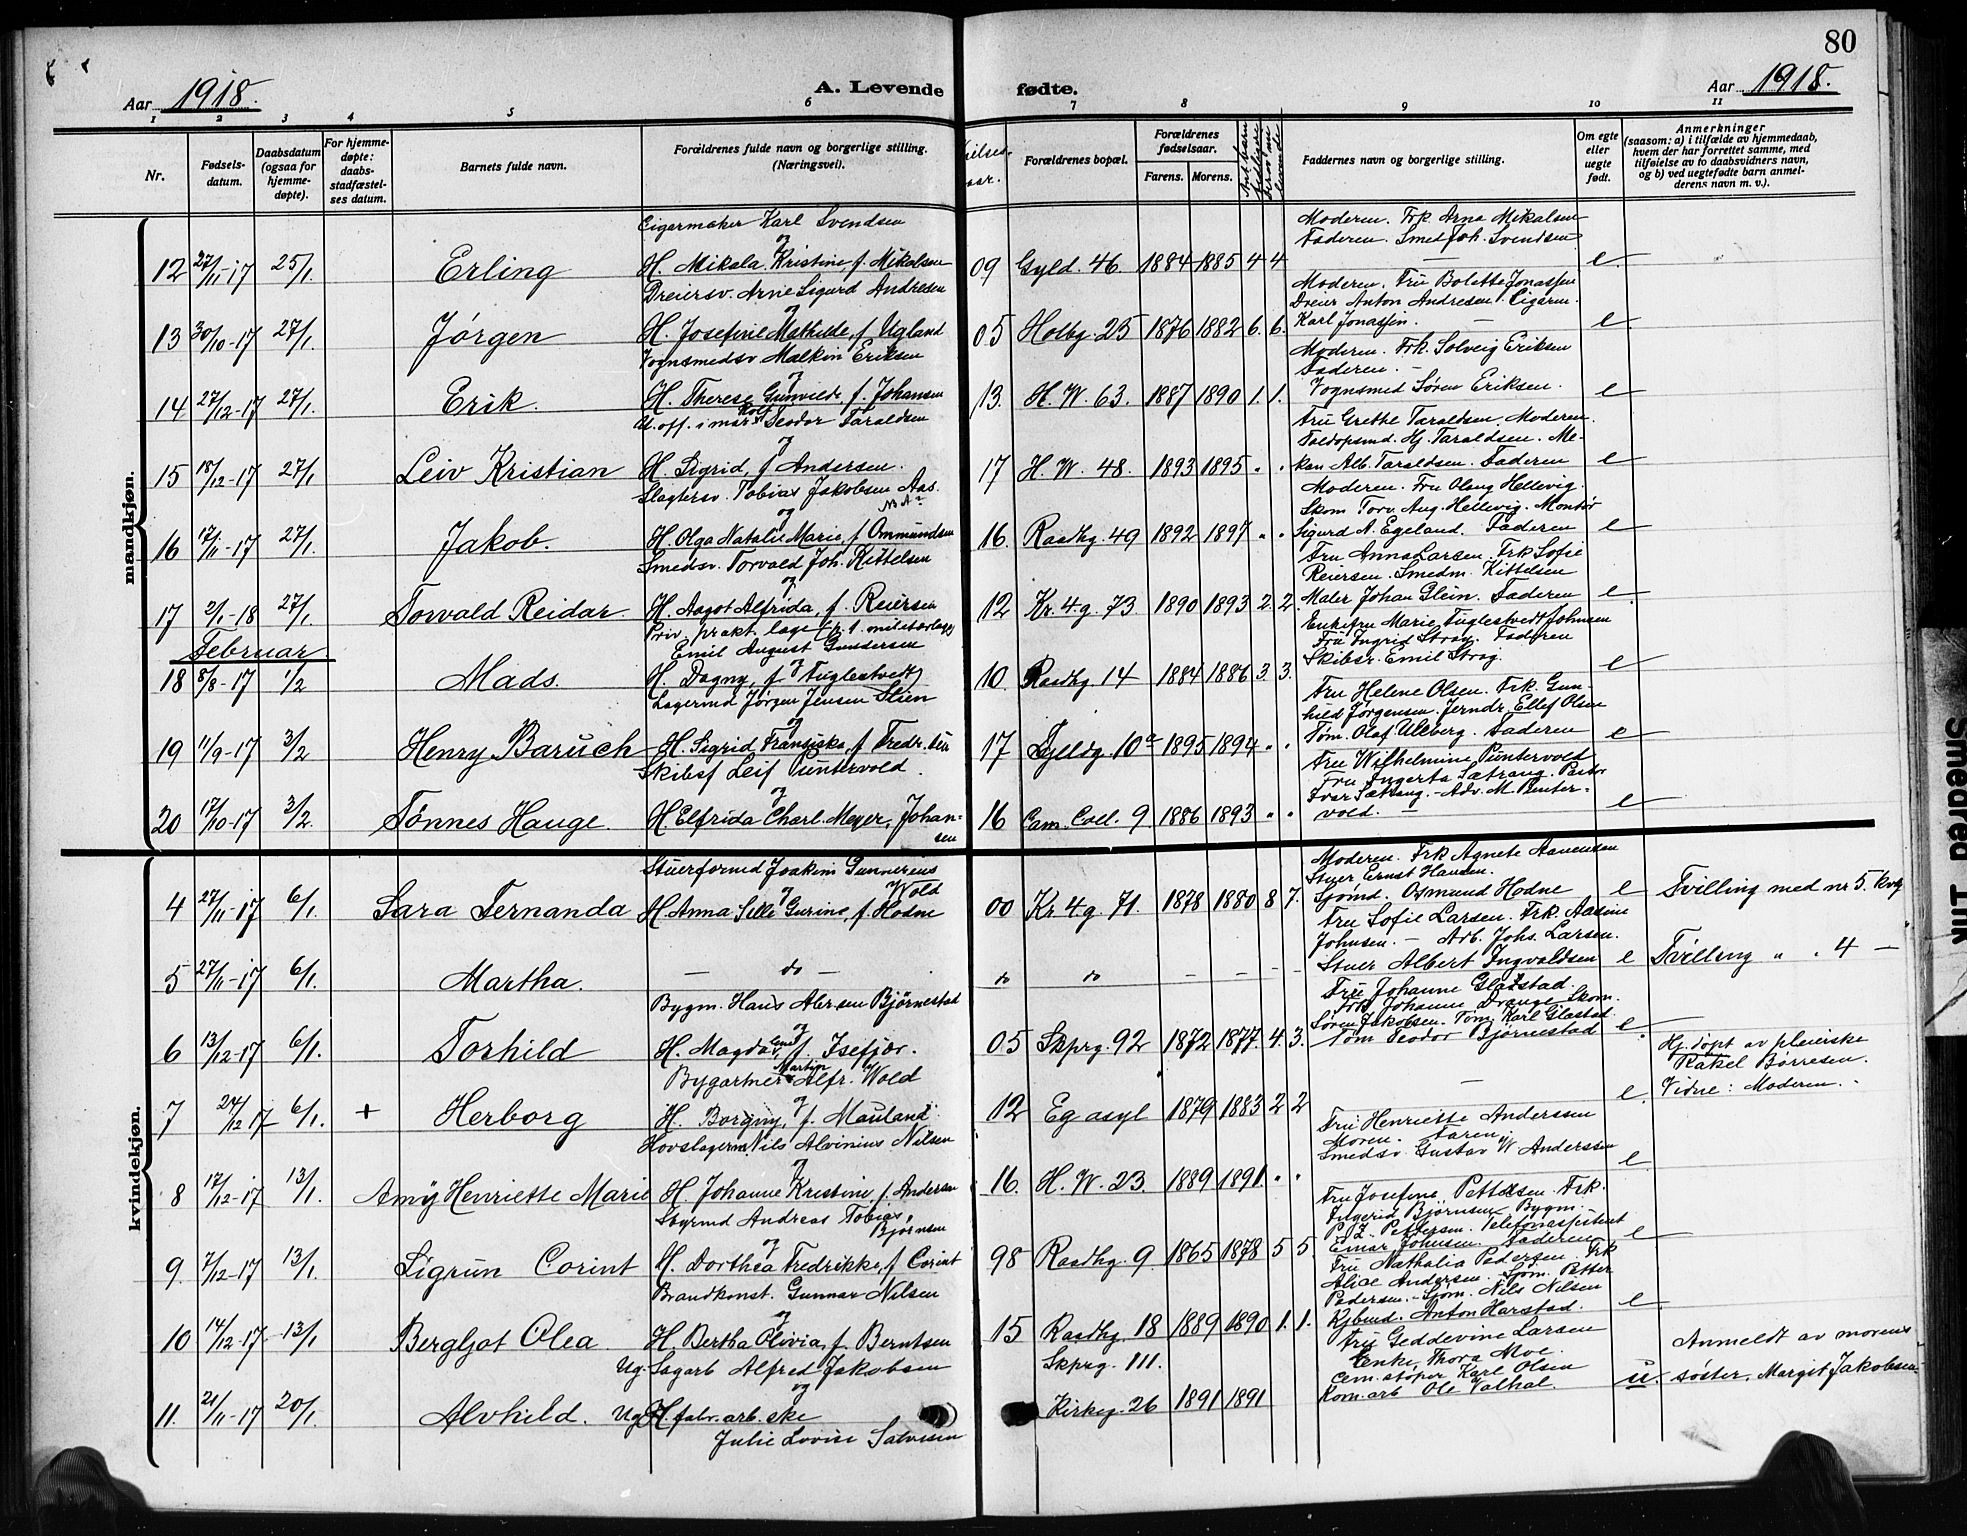 80
Aar 1918.
A. Levende fødte.
Aar 1918.
1 2 3 4 5 6 7 8 9 10 11
Nr.
Fødsels-
datum.
Daabsdatum
(ogsaa for
hjemme-
døpte).
For hjemme-
døpte:
daabs-
stadfæstel-
ses datum.
Barnets fulde navn.
Forældrenes fulde navn og borgerlige stilling.
(Næringsvei).
Forældrenes bopæl.
Forældrenes
fødselsaar.
Farens. Morens.
Faddernes navn og borgerlige stilling.
Om egte
eller
uegte
født.
Anmerkninger
(saasom: a) i tilfælde av hjemmedaab,
hvem der har forrettet samme, med
tilføielse av to daabsvidners navn,
og b) ved uegtefødte barn anmel-
derens navn m. v.).
mandkjøn.
Cigarmaker Karl Svendsen
og
12 27/11-17 25/1. Erling H. Mikala Kristine f. Mikalsen 09 Gyld. 46. 1884 1885 4 4 e
Moderen. Frk. Arna Mikalsen
Faderen. Smed Joh. Svendsen
Dreiersv. Arne Sigurd Andresen
og
13 30/10-17 27/1. Jørgen H. Josefine Mathilde, f. Ugland 05 Holbg. 25 1876 1882 6. 6. e
Moderen. Fru Bolette Jonassen
Dreier Anton Andresen. Cigarm.
Karl Jonassen.
Vognsmedsv. Malkin Eriksen
og
14 27/12-17 27/1. Erik. H. Therese Gunvilde f. Johansen 13. H. W. 63. 1887 1890 1. 1. e
Moderen. Frk. Solveig Eriksen
Faderen.
Vognsmed Søren Eriksen.
U. off. i mar. Rolf Teodor Taraldsen
og
15 18/12-17 27/1 Leiv Kristian H. Sigrid, f. Andersen. 17 H. W. 48. 1893 1895 " " e
Fru Grethe Taraldsen. Moderen.
Toldopsmd. Hj. Taraldsen. Me-
kan Alb. Taraldsen. Faderen
Slagtersv. Tobias Jakobsen Aas.
og
16 17/11-17 27/1. Jakob. H. Olga Natalie Marie, f. Ommundsen 16. Raadhg. 49 1892 1897 " " e
Moderen. Fru Olaug Hellevig.
Skom Torv. Aug. Hellevig. Montør
Sigurd A. Egeland. Faderen
Smedsv. Torvald Joh. Kittelsen
og
17 2/1-18 27/1. Torvald Reidar. H. Aagot Alfrida, f. Reiersen 12 Kr. 4. g. 73 1890 1893 2. 2. e
Fru Anna Larsen. Frk Sofie
Reiersen. Smedm. Kittelsen
Maler Johan Glein. Faderen
Februar.
Priv. prakt. læge
Emil August Gundersen
og
18 8/8-17 1/2 Mads. H. Dagny, f. Fuglestvedt 10. Raadhg. 14 1884 1886 3. 3. e
Enkefru Marie Fuglestvedt Johnsen
Fru Ingrid Stray. Faderen
Skibsr. Emil Stray.
Lagermd Jørgen Jensen Stien
og
19 11/9-17 3/2 Henry Baruch H. Sigrid Fransiska, f. 17 Gyldg. 10a 1895 1894 " " e
Fru Helene Olsen. Frk. Gun-
hild Jørgensen. Jerndr. Ellef Olsen
Tøm. Olaf Aleberg. Faderen
Skibsf Leif Puntervold.
og
20 17/10-17 3/2. Tønnes Hauge. H. Elfrida Charl. Meyer, Johan-
sen 16 Cam. Coll. 9. 1886 1893 " " e
Fru Wilhelmine Puntervold
Fru Ingerta Sætrang. Pastor
Ivar Sætrang. - Adv. M. Punter-
vold. -
kvindekjøn.
Stuerformd Joakim Gunnerius
Wold
og
4 27/11-17 6/1. Sara Fernanda H. Anna Sille Gurine, f. Hodne 00 Kr. 4 g. 71. 1878 1880 8 7. e Tvilling med nr 5. kvk
Moderen. Frk Agnete Aanensen
Stuer Ernst Hansen.
Sjømd. Osmund Hodne
5 27/11-17 6/1. Martha. — do — do do — — — — e Tvilling " " 4 —
Fru Sofie Larsen. Frk. Aasine
Johnsen. — Arb. Johs. Larsen.
Stuer Albert Ingvaldsen
Bygm. Hans Abr.sen Bjørnestad
og
6 13/12-17 6/1. Torhild H. Magdalene, f. Isefjær. 05 Skprg. 92 1872 1877. 4. 3. e
Fru Johanne Glastad.
Frk Johanne Drange. Skom.
Søren Jakobsen. Tøm. Karl Glastad
Tøm Teodor Bjørnestad
Bygartner Martin Alfr. Wold
og
7 24/12-17 6/1. + Herborg H. Borgny, f. Mauland 12 Eg asyl 1879 1883 2 2 — e.
Hj. døpt av pleierske
Rakel Børresen.
Vidne: Moderen.
Hovslagerm. Nils Alvinius Nilsen
og
8 17/12-17 13/1. Amy Henriette Marie H. Johanne Kristine, f. Andersen 16. H. W. 23. 1889 1891. " " e
Fru Henriette Anderssen
Moren. Faren.
Smedsv. Gustav W. Anderssen
Styrmd Andreas Tobias
Bjørnsen
og
9. 7/12-17 13/1. Sigrun Corint H. Dorthea Fredrikke, f. Corint 98 Raadhg. 9 1865 1878 5 5 e
Fru Josefine Pettersen. Frk.
Ingerid Bjørnsen. Bygm.
P. Z. Pettersen. Telefonassistent
Einar Johnsen. Faderen
Brandkonst. Gunnar Nilsen
og
10 14/12-17. 13/1 Bergljot Olea. H. Bertha Olivia, f. Berntsen 15 Raadhg. 18 1889 1890 1. 1. e
Fru Nathalia Pedersen. Frk
Alice Andersen. Sjøm. Petter
Pedersen. - Sjøm. Nils Nilsen
Kjbmd. Anton Harstad.
Ug. Sagarb Alfred Jakobsen
og
Skprg. 111.
11. 21/11-17 20/1. Alvhild. Ug H. fabr. arb. ske
Julie Lovise Salvesen Kirkeg. 26 1891 1891 u.
Fru Geddevine Larsen
Enke, Thora Moe.
Cem. støper Karl Olsen
Kom. arb Ole Valhal.
Anmeldt av morens
søster, Margit Jakobsen